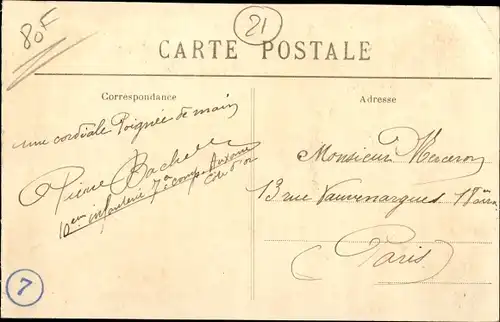 80F
21
CARTE POSTALE
Correspondance
Adresse
une cordiale Poignée de main
Pierre Bachel
10em infanterie 7e comp. Auxonne
Côte d'or
Monsieur Merceron
13 rue Vauvenargues 18
(Paris)
7